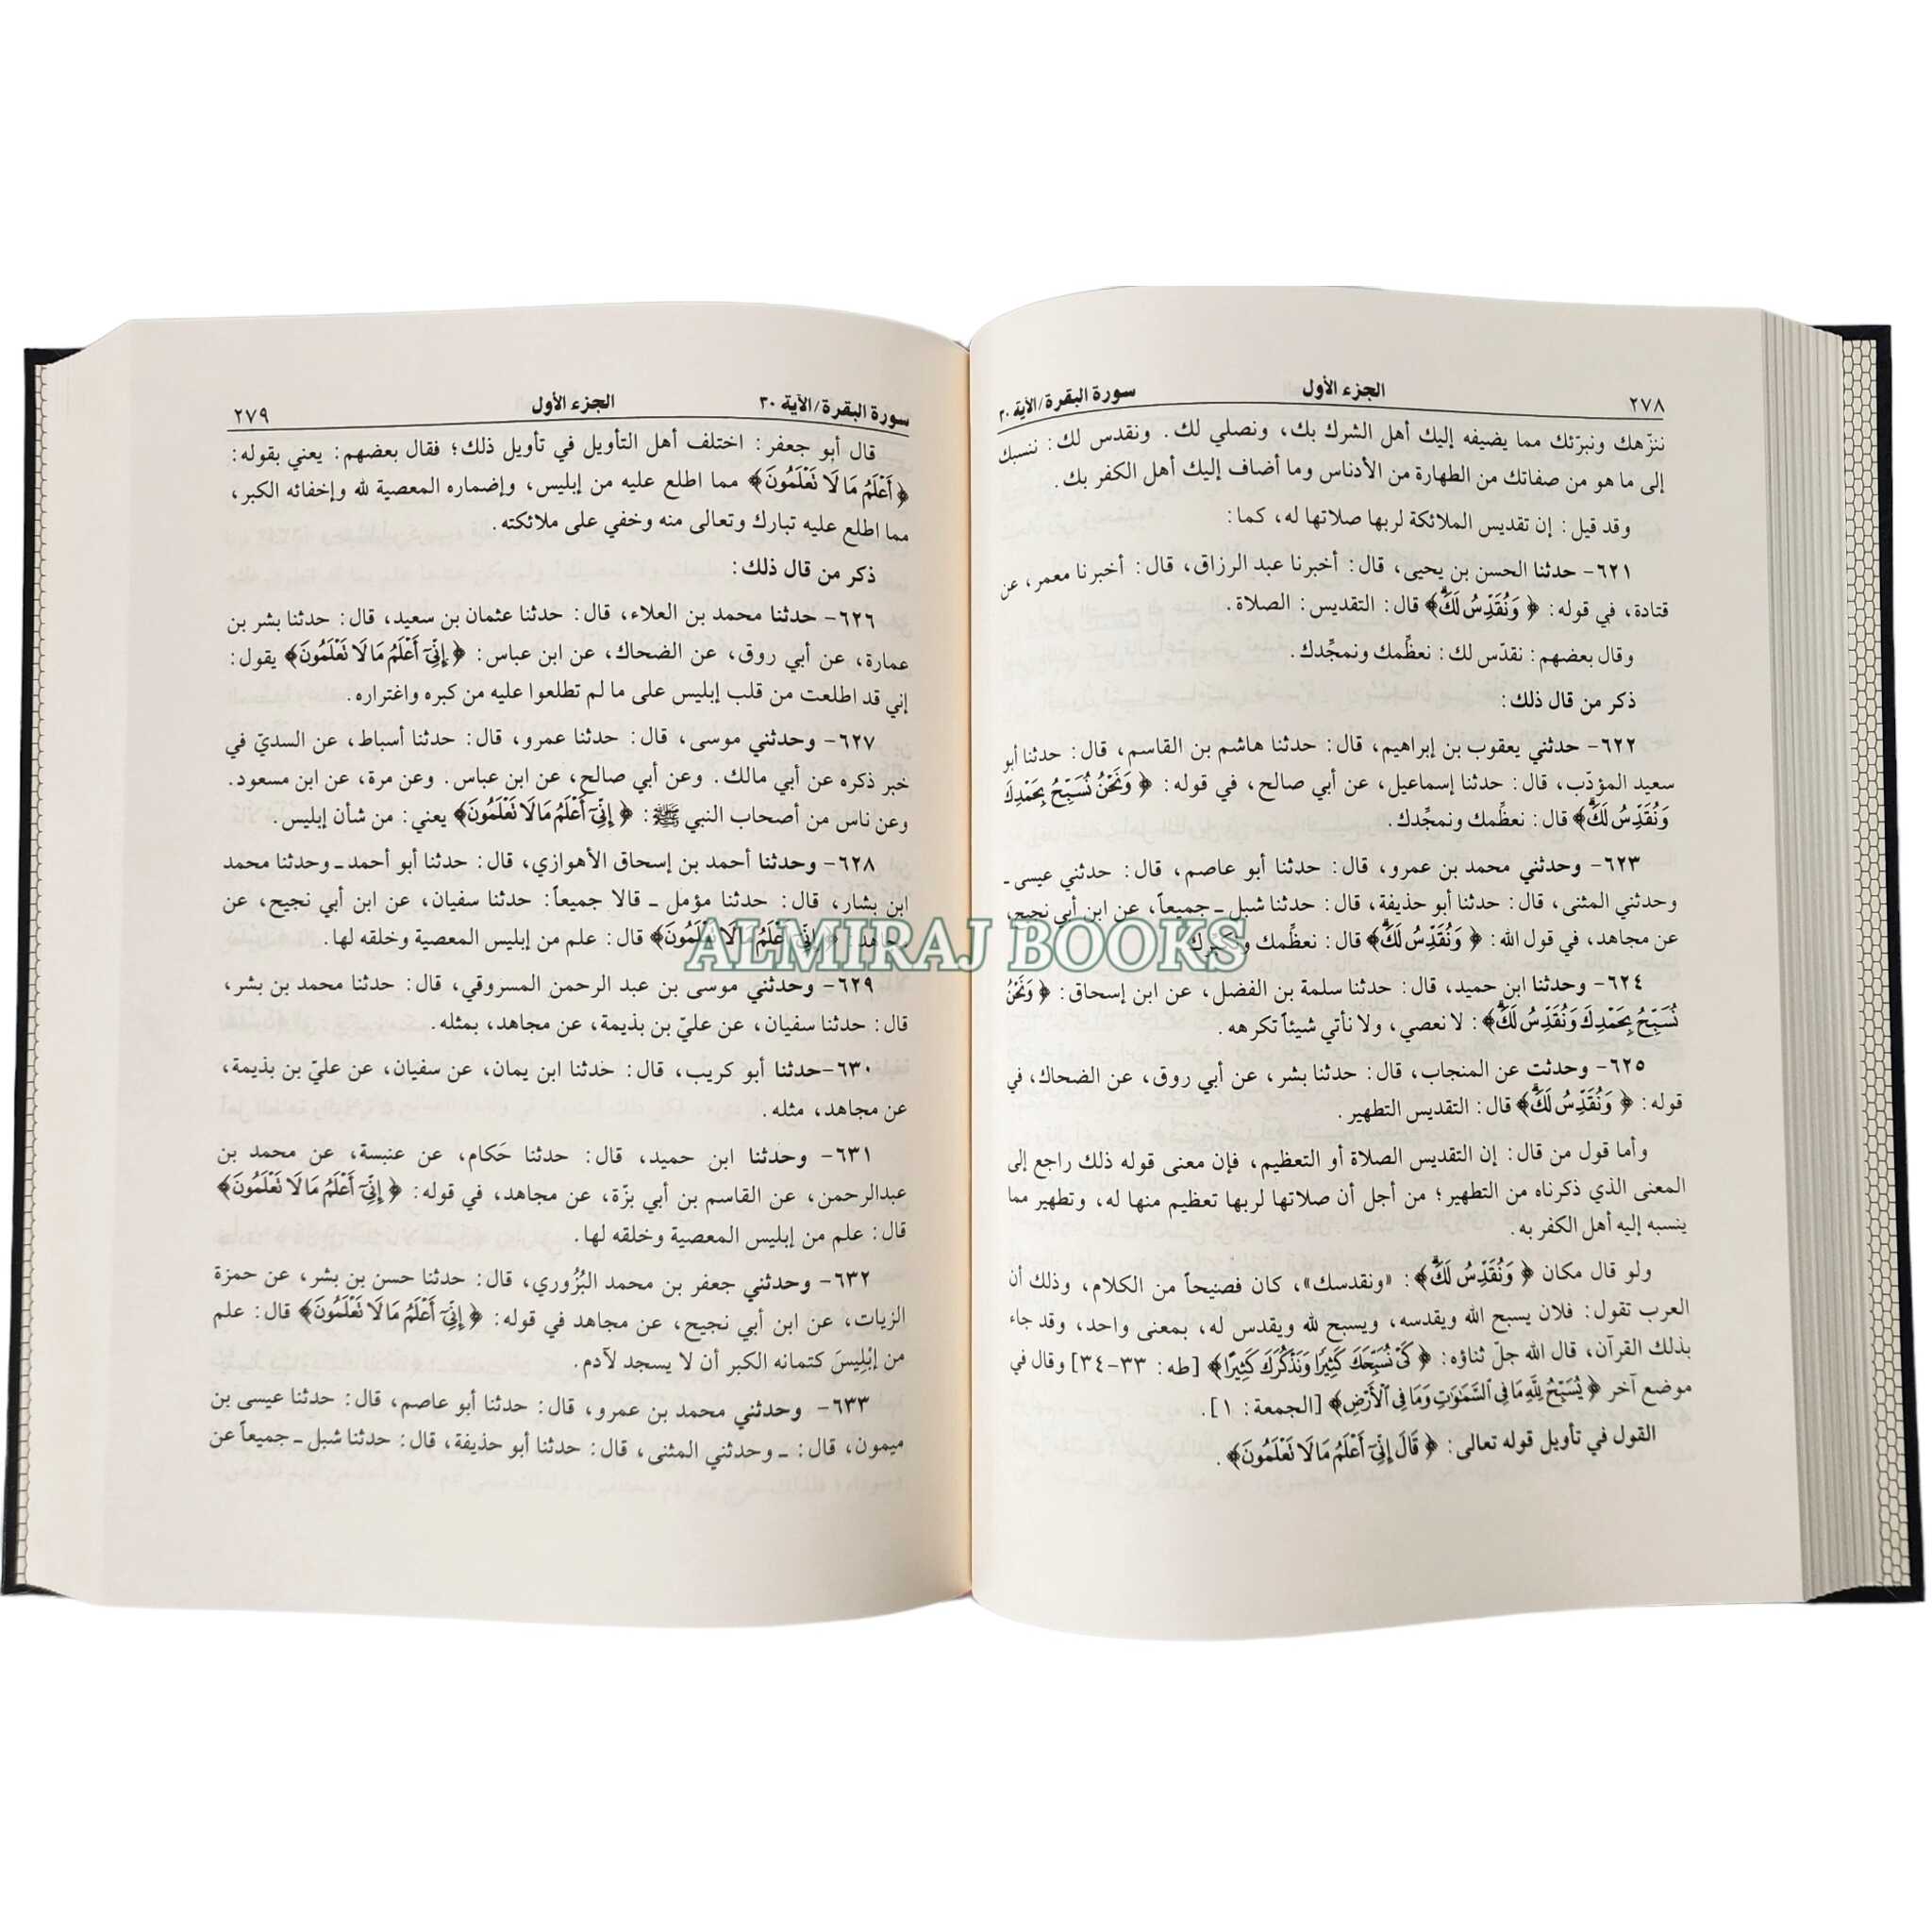 ٢٧٨ الجزء الأول سورة البقرة/الآية ٣٠
ننزّهك ونبرّئك مما يضيفه إليك أهل الشرك بك، ونصلي لك. ونقدس لك: ننسبك
إلى ما هو من صفاتك من الطهارة من الأدناس وما أضاف إليك أهل الكفر بك.
وقد قيل: إن تقديس الملائكة لربها صلاتها له، كما:
٦٢١- حدثنا الحسن بن يحيى، قال: أخبرنا عبد الرزاق، قال: أخبرنا معمر، عن
قتادة، في قوله: ﴿وَنُقَدِّسُ لَكَ﴾ قال: التقديس: الصلاة.
وقال بعضهم: نقدّس لك: نعظِّمك ونمجِّدك.
ذكر من قال ذلك:
٦٢٢- حدثني يعقوب بن إبراهيم، قال: حدثنا هاشم بن القاسم، قال: حدثنا أبو
سعيد المؤدّب، قال: حدثنا إسماعيل، عن أبي صالح، في قوله: ﴿وَنَحْنُ نُسَبِّحُ بِحَمْدِكَ
وَنُقَدِّسُ لَكَ﴾ قال: نعظِّمك ونمجِّدك.
٦٢٣- وحدثني محمد بن عمرو، قال: حدثنا أبو عاصم، قال: حدثني عيسى ـ
وحدثني المثنى، قال: حدثنا أبو حذيفة، قال: حدثنا شبل ـ جميعاً، عن ابن أبي نجيح،
عن مجاهد، في قول الله: ﴿وَنُقَدِّسُ لَكَ﴾ قال: نعظِّمك
٦٢٤- وحدثنا ابن حميد، قال: حدثنا سلمة بن الفضل، عن ابن إسحاق: ﴿وَنَحْنُ
نُسَبِّحُ بِحَمْدِكَ وَنُقَدِّسُ لَكَ﴾: لا نعصي، ولا نأتي شيئاً تكرهه.
٦٢٥- وحدثت عن المنجاب، قال: حدثنا بشر، عن أبي روق، عن الضحاك، في
قوله: ﴿وَنُقَدِّسُ لَكَ﴾ قال: التقديس التطهير.
وأما قول من قال: إن التقديس الصلاة أو التعظيم، فإن معنى قوله ذلك راجع إلى
المعنى الذي ذكرناه من التطهير؛ من أجل أن صلاتها لربها تعظيم منها له، وتطهير مما
ينسبه إليه أهل الكفر به.
ولو قال مكان ﴿وَنُقَدِّسُ لَكَ﴾: «ونقدسك»، كان فصيحاً من الكلام، وذلك أن
العرب تقول: فلان يسبح الله ويقدسه، ويسبح لله ويقدس له، بمعنى واحد، وقد جاء
بذلك القرآن، قال الله جلّ ثناؤه: ﴿كَيْ نُسَبِّحَكَ كَثِيرًا وَنَذْكُرَكَ كَثِيرًا﴾ [طه: ٣٣-٣٤] وقال في
موضع آخر ﴿يُسَبِّحُ لِلَّهِ مَا فِي السَّمَٰوَٰتِ وَمَا فِي الْأَرْضِ﴾ [الجمعة: ١].
القول في تأويل قوله تعالى: ﴿قَالَ إِنِّيٓ أَعْلَمُ مَا لَا تَعْلَمُونَ﴾.
سورة البقرة/الآية ٣٠ الجزء الأول ٢٧٩
قال أبو جعفر: اختلف أهل التأويل في تأويل ذلك؛ فقال بعضهم: يعني بقوله:
﴿أَعْلَمُ مَا لَا تَعْلَمُونَ﴾ مما اطلع عليه من إبليس، وإضماره المعصية لله وإخفائه الكبر،
مما اطلع عليه تبارك وتعالى منه وخفي على ملائكته.
ذكر من قال ذلك:
٦٢٦- حدثنا محمد بن العلاء، قال: حدثنا عثمان بن سعيد، قال: حدثنا بشر بن
عمارة، عن أبي روق، عن الضحاك، عن ابن عباس: ﴿إِنِّيٓ أَعْلَمُ مَا لَا تَعْلَمُونَ﴾ يقول:
إني قد اطلعت من قلب إبليس على ما لم تطلعوا عليه من كبره واغتراره.
٦٢٧- وحدثني موسى، قال: حدثنا عمرو، قال: حدثنا أسباط، عن السديّ في
خبر ذكره عن أبي مالك. وعن أبي صالح، عن ابن عباس. وعن مرة، عن ابن مسعود.
وعن ناس من أصحاب النبي ﷺ: ﴿إِنِّيٓ أَعْلَمُ مَا لَا تَعْلَمُونَ﴾ يعني: من شأن إبليس.
٦٢٨- وحدثنا أحمد بن إسحاق الأهوازي، قال: حدثنا أبو أحمد ـ وحدثنا محمد
ابن بشار، قال: حدثنا مؤمل ـ قالا جميعاً: حدثنا سفيان، عن ابن أبي نجيح، عن
مجاهد: ﴿إِنِّيٓ أَعْلَمُ مَا لَا تَعْلَمُونَ﴾ قال: علم من إبليس المعصية وخلقه لها.
٦٢٩- وحدثني موسى بن عبد الرحمن المسروقي، قال: حدثنا محمد بن بشر،
قال: حدثنا سفيان، عن عليّ بن بذيمة، عن مجاهد، بمثله.
٦٣٠-حدثنا أبو كريب، قال: حدثنا ابن يمان، عن سفيان، عن عليّ بن بذيمة،
عن مجاهد، مثله.
٦٣١- وحدثنا ابن حميد، قال: حدثنا حَكام، عن عنبسة، عن محمد بن
عبدالرحمن، عن القاسم بن أبي بزّة، عن مجاهد، في قوله: ﴿إِنِّيٓ أَعْلَمُ مَا لَا تَعْلَمُونَ﴾
قال: علم من إبليس المعصية وخلقه لها.
٦٣٢- وحدثني جعفر بن محمد البُزُوري، قال: حدثنا حسن بن بشر، عن حمزة
الزيات، عن ابن أبي نجيح، عن مجاهد في قوله: ﴿إِنِّيٓ أَعْلَمُ مَا لَا تَعْلَمُونَ﴾ قال: علم
من إبْلِيسَ كتمانه الكبر أن لا يسجد لآدم.
٦٣٣- وحدثني محمد بن عمرو، قال: حدثنا أبو عاصم، قال: حدثنا عيسى بن
ميمون، قال: ـ وحدثني المثنى، قال: حدثنا أبو حذيفة، قال: حدثنا شبل ـ جميعاً عن
ALMIRAJ BOOKS